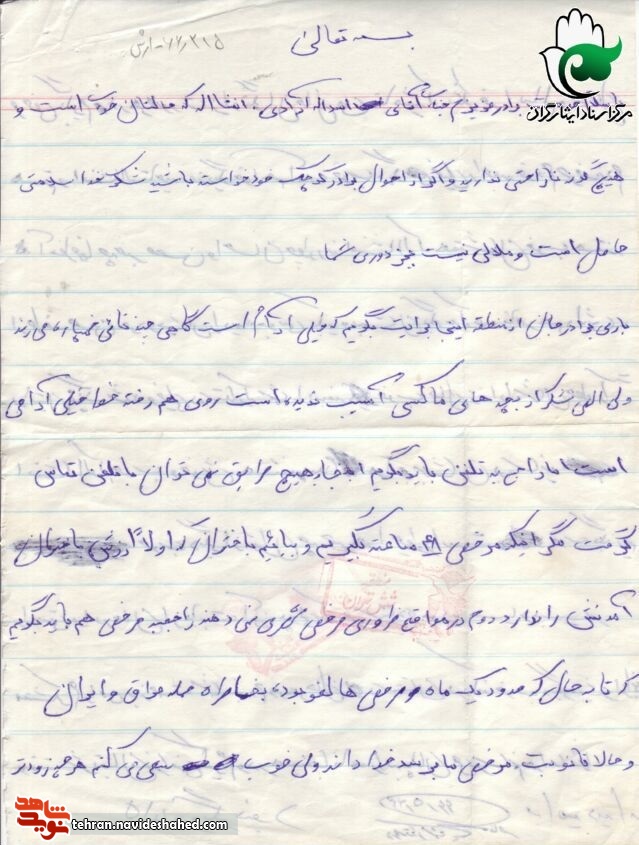 بسمه تعالی
مرکز اسناد ایثارگران
برادر عزیزم جناب آقای اکرامی، انشاالله که حالتان خوب است و
هیچگونه ناراحتی ندارید و اگر از احوال برادر کوچک خود خواسته باشید شکر خدا سلامتی
حاصل است و ملالی نیست بجز دوری شما
باری برادر جان از منطقه اینجا برایت بگویم که خیلی آرام است گاهی چند تائی خمپاره می زند
ولی الهی شکر از بچه های ما کسی آسیب ندیده است روی هم رفته خط خیلی آرامی
است اما راجع به تلفن باید بگویم اینجا به هیچ طریق نمی توان با تلفن تماس
گرفت مگر اینکه مرخصی ۴۸ ساعته بگیریم و بیائیم باختران که اولاً ارزش باختران
آمدنش را ندارد و دوم در مواقع ضروری مرخصی شهری می دهند راجع به مرخصی هم باید بگویم
که تا به حال که حدود یک ماه مرخصی ها لغو بوده بخاطر حمله عراق و ایران
و حالا تا نوبت مرخصی ما برسد خدا داند ولی خوب سعی می کنم هر چه زودتر
نوید شاهد
tehran.navideshahed.com